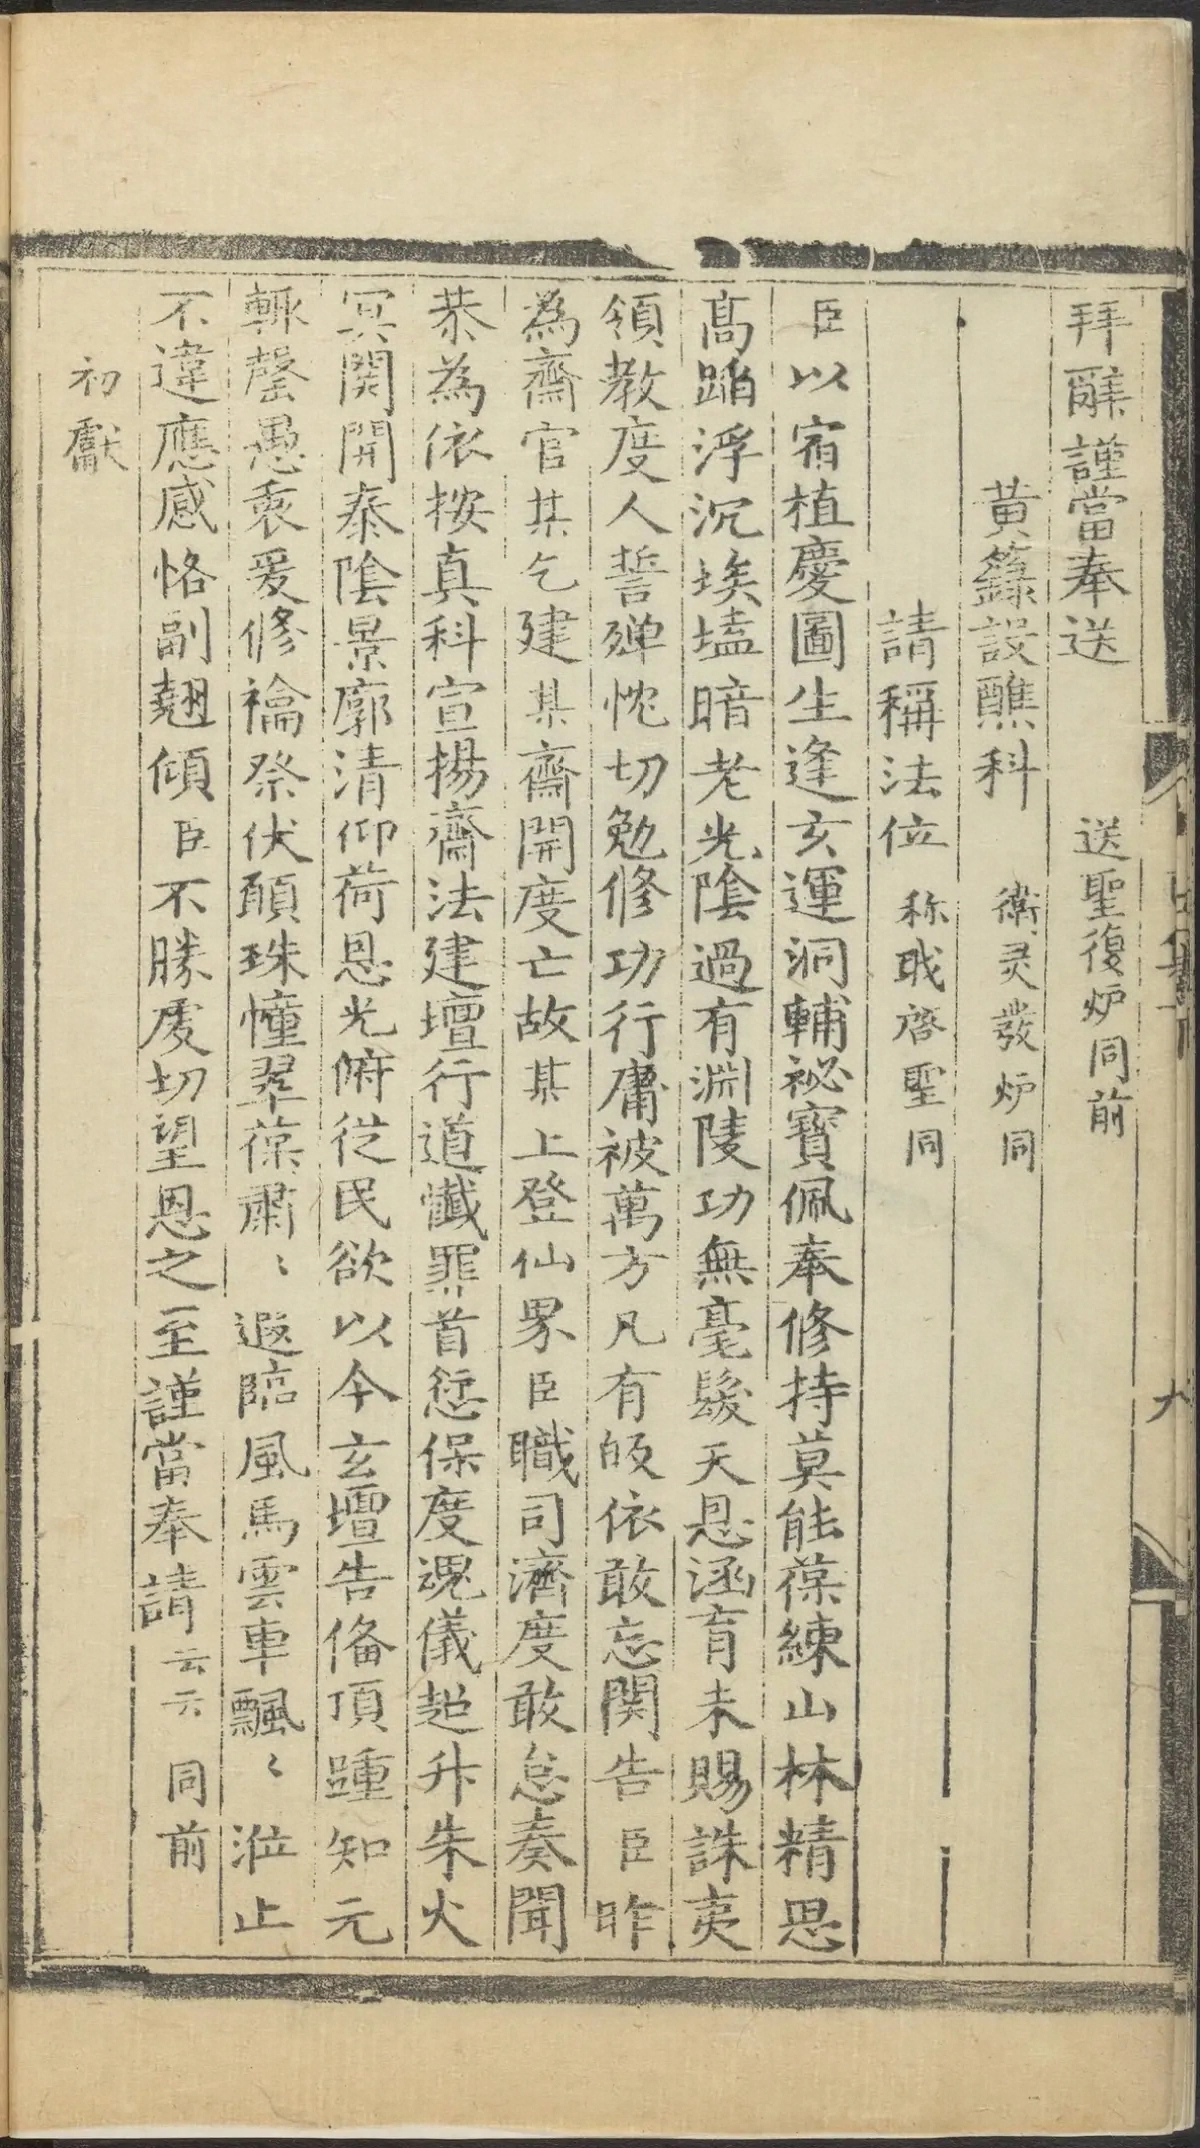 拜辭謹當奉送　送聖復炉同前
黃籙設醮科　衛灵發炉同
請稱法位　称职啓聖同
臣以宿植慶圖生逢玄運洞輔祕寶佩奉修持莫能葆練山林精思
高蹈浮沉埃壒暗老光陰過有淵陵功無毫髮天恩涵育未賜誅夷
領教度人誓殫忱切勉修功行庸被萬方凡有皈依敢忘関告臣昨
為齋官某乞建某齋開度亡故某上登仙界臣職司濟度敢怠奏聞
恭為依按真科宣揚齋法建壇行道懺罪首愆保度魂儀超升朱火
冥関開泰陰景廓清仰荷恩光俯從民欲以今玄壇告俻頂踵知元
輒罄愚衷爰修禴祭伏願珠幢翠葆肅〻遐臨風馬雲車飄〻涖止
不違應感恪副翹傾臣不勝虔切望恩之至謹當奉請云云同前
初獻